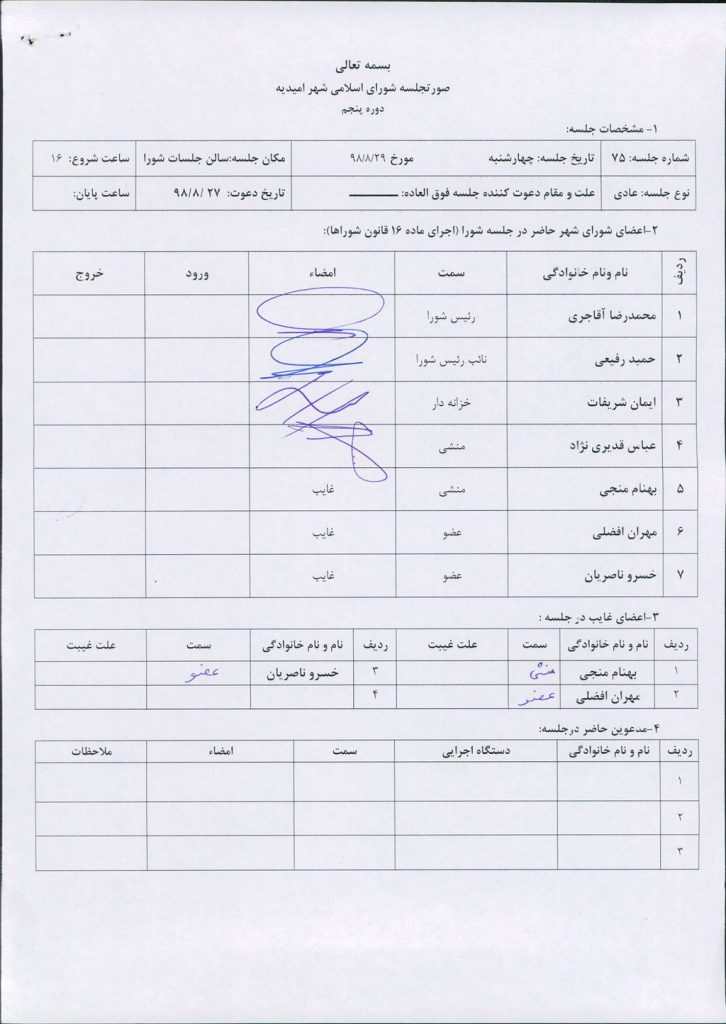 بسمه تعالی
صورتجلسه شورای اسلامی شهر امیدیه
دوره پنجم
۱- مشخصات جلسه:
شماره جلسه: ۷۵ تاریخ جلسه: چهارشنبه مورخ ۹۸/۸/۲۹ مکان جلسه:سالن جلسات شورا ساعت شروع: ۱۶
نوع جلسه: عادی علت و مقام دعوت کننده جلسه فوق العاده: ــــــــــــ تاریخ دعوت: ۲۷ /۹۸/۸ ساعت پایان:
۲-اعضای شورای شهر حاضر در جلسه شورا (اجرای ماده ۱۶ قانون شوراها):
ردیف نام ونام خانوادگی سمت امضاء ورود خروج
۱ محمدرضا آقاجری رئیس شورا
۲ حمید رفیعی نائب رئیس شورا
۳ ایمان شریفات خزانه دار
۴ عباس قدیری نژاد منشی
۵ بهنام منجی منشی غایب
۶ مهران افضلی عضو غایب
۷ خسرو ناصریان عضو غایب
۳-اعضای غایب در جلسه :
ردیف نام و نام خانوادگی سمت علت غیبت ردیف نام و نام خانوادگی سمت علت غیبت
۱ بهنام منجی منشی ۳ خسرو ناصریان عضو
۲ مهران افضلی عضو ۴
۴-مدعوین حاضر درجلسه:
ردیف نام و نام خانوادگی دستگاه اجرایی سمت امضاء ملاحظات
۱
۲
۳